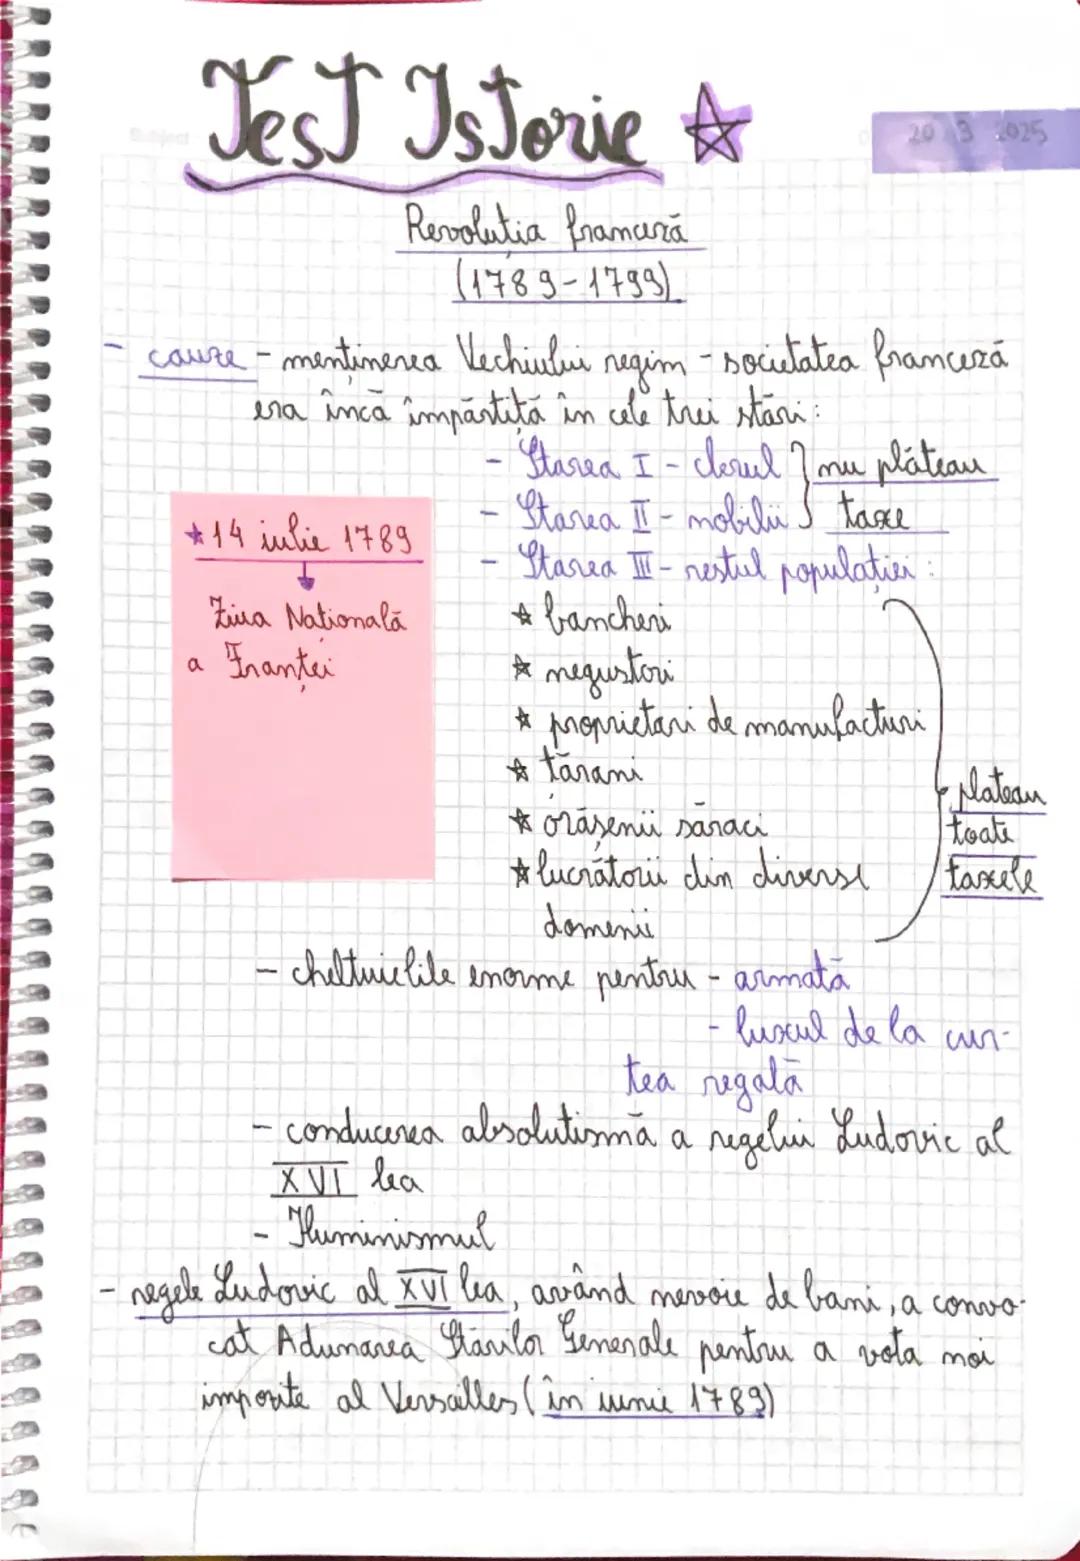 Test Istorie
Subject
20 3 2025
Revoluția franceză
(1789-1799)
- cauze - menținerea Vechiului regim - societatea franceză
era încă împărțită în cele trei stări:
- Starea I - clerul
- Starea II - nobilii
nu plăteau
taxe
- Starea III - restul populației:
★ 14 iulie 1789
Ziua Națională
a Franței
☆ bancheri
☆ negustori
☆ proprietari de manufacturi
☆ țărani
☆ orășenii săraci
☆ lucrătorii din diverse
domenii
plateau
toate
taxele
- cheltuielile enorme pentru - armată
- luxul de la cur-
tea regală
- conducerea absolutismă a regelui Ludovic al
XVI lea
- Iluminismul
- regele Ludovic al XVI lea, având nevoie de bani, a convo-
cat Adunarea Stărilor Generale pentru a vota noi
impozite al Versailles (în iunie 1789)